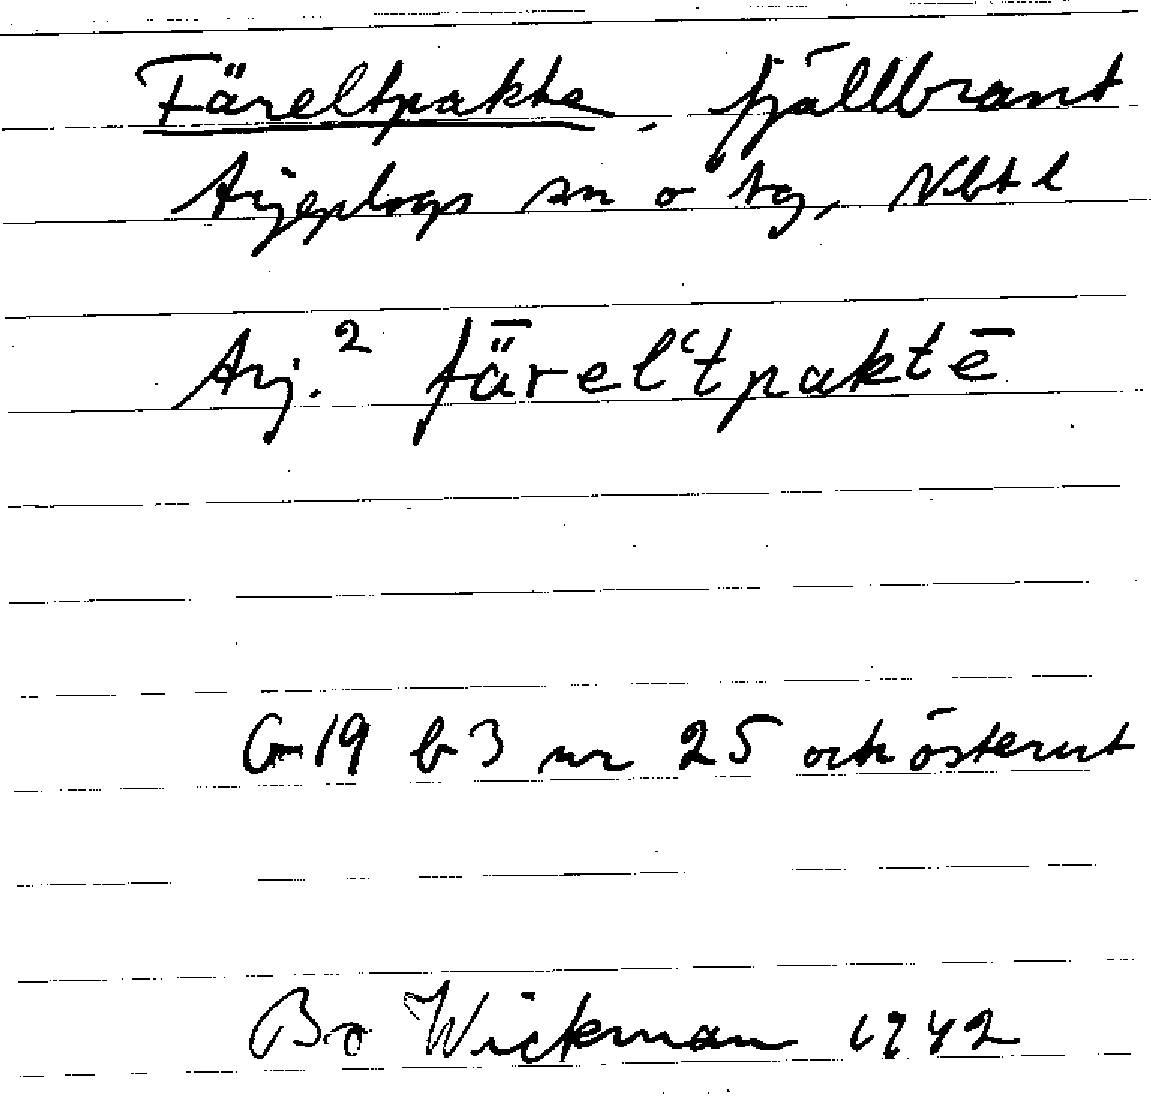 Färeltpakte, fjällbrant
Arjeplogs sn o tg, Nbt l
Arj.² färelʿtpaktē
G 19 b 3 nr 25 och österut
Bo Wickman 1942